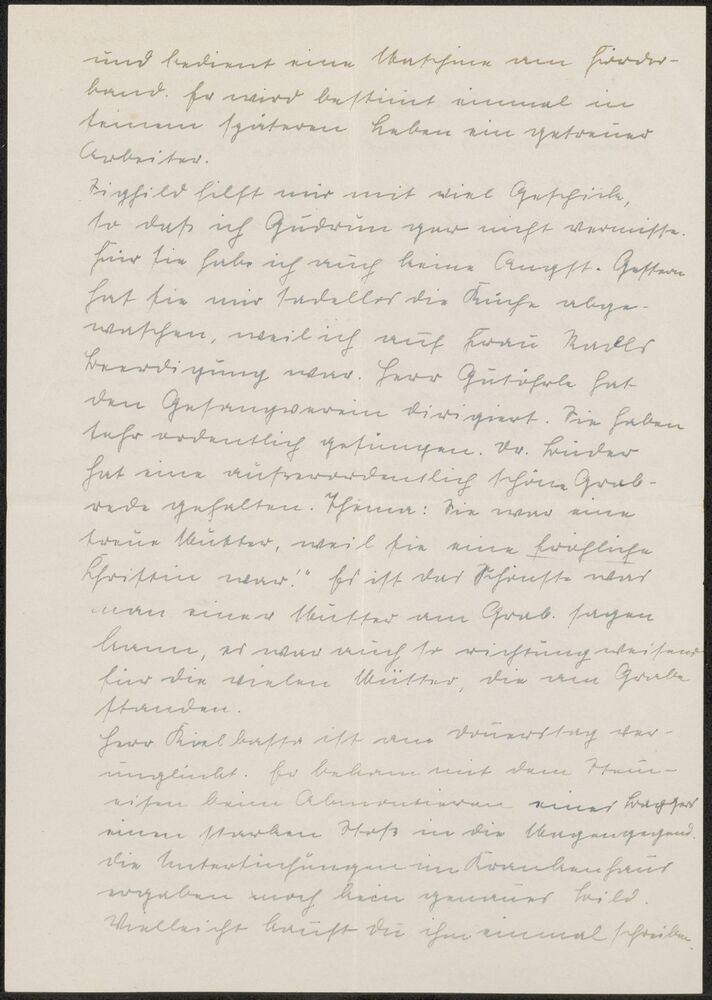 und bedient eine Maschine am Förder-
band. Er wird bestimt einmal in
seinem späteren Leben ein getreuer
Arbeiter.
Sighild hilft mir mit viel Geschick,
so daß ich Gudrun gar nicht vermisse.
Für sie habe ich auch keine Angst. Gestern
hat sie mir tadellos die Küche abge-
waschen, weil ich auf Frau Nadls
Beerdigung war. Herr Gutöhrle hat
den Gesangverein dirigiert. Sie haben
sehr ordentlich gesungen. Dr. Bruder
hat eine außerordentlich schöne Grab-
rede gehalten. Thema: Sie war eine
treue Mutter, weil sie eine fröhliche
Christin war!" Es ist das Schönste was
man einer Mutter am Grab. sagen
kann, es war auch so richtungweisend
für die vielen Mütter, die am Grabe
standen.
Herr Kielbassa ist am Donnerstag ver-
unglückt. Er bekam mit dem Stem-
eisen beim Abmontieren eines Baggers
einen starken Stoß in die Magengegend.
Die Untersuchungen im Krankenhaus
ergaben noch kein genaues Bild.
Vielleicht kannst Du ihm einmal schreiben.